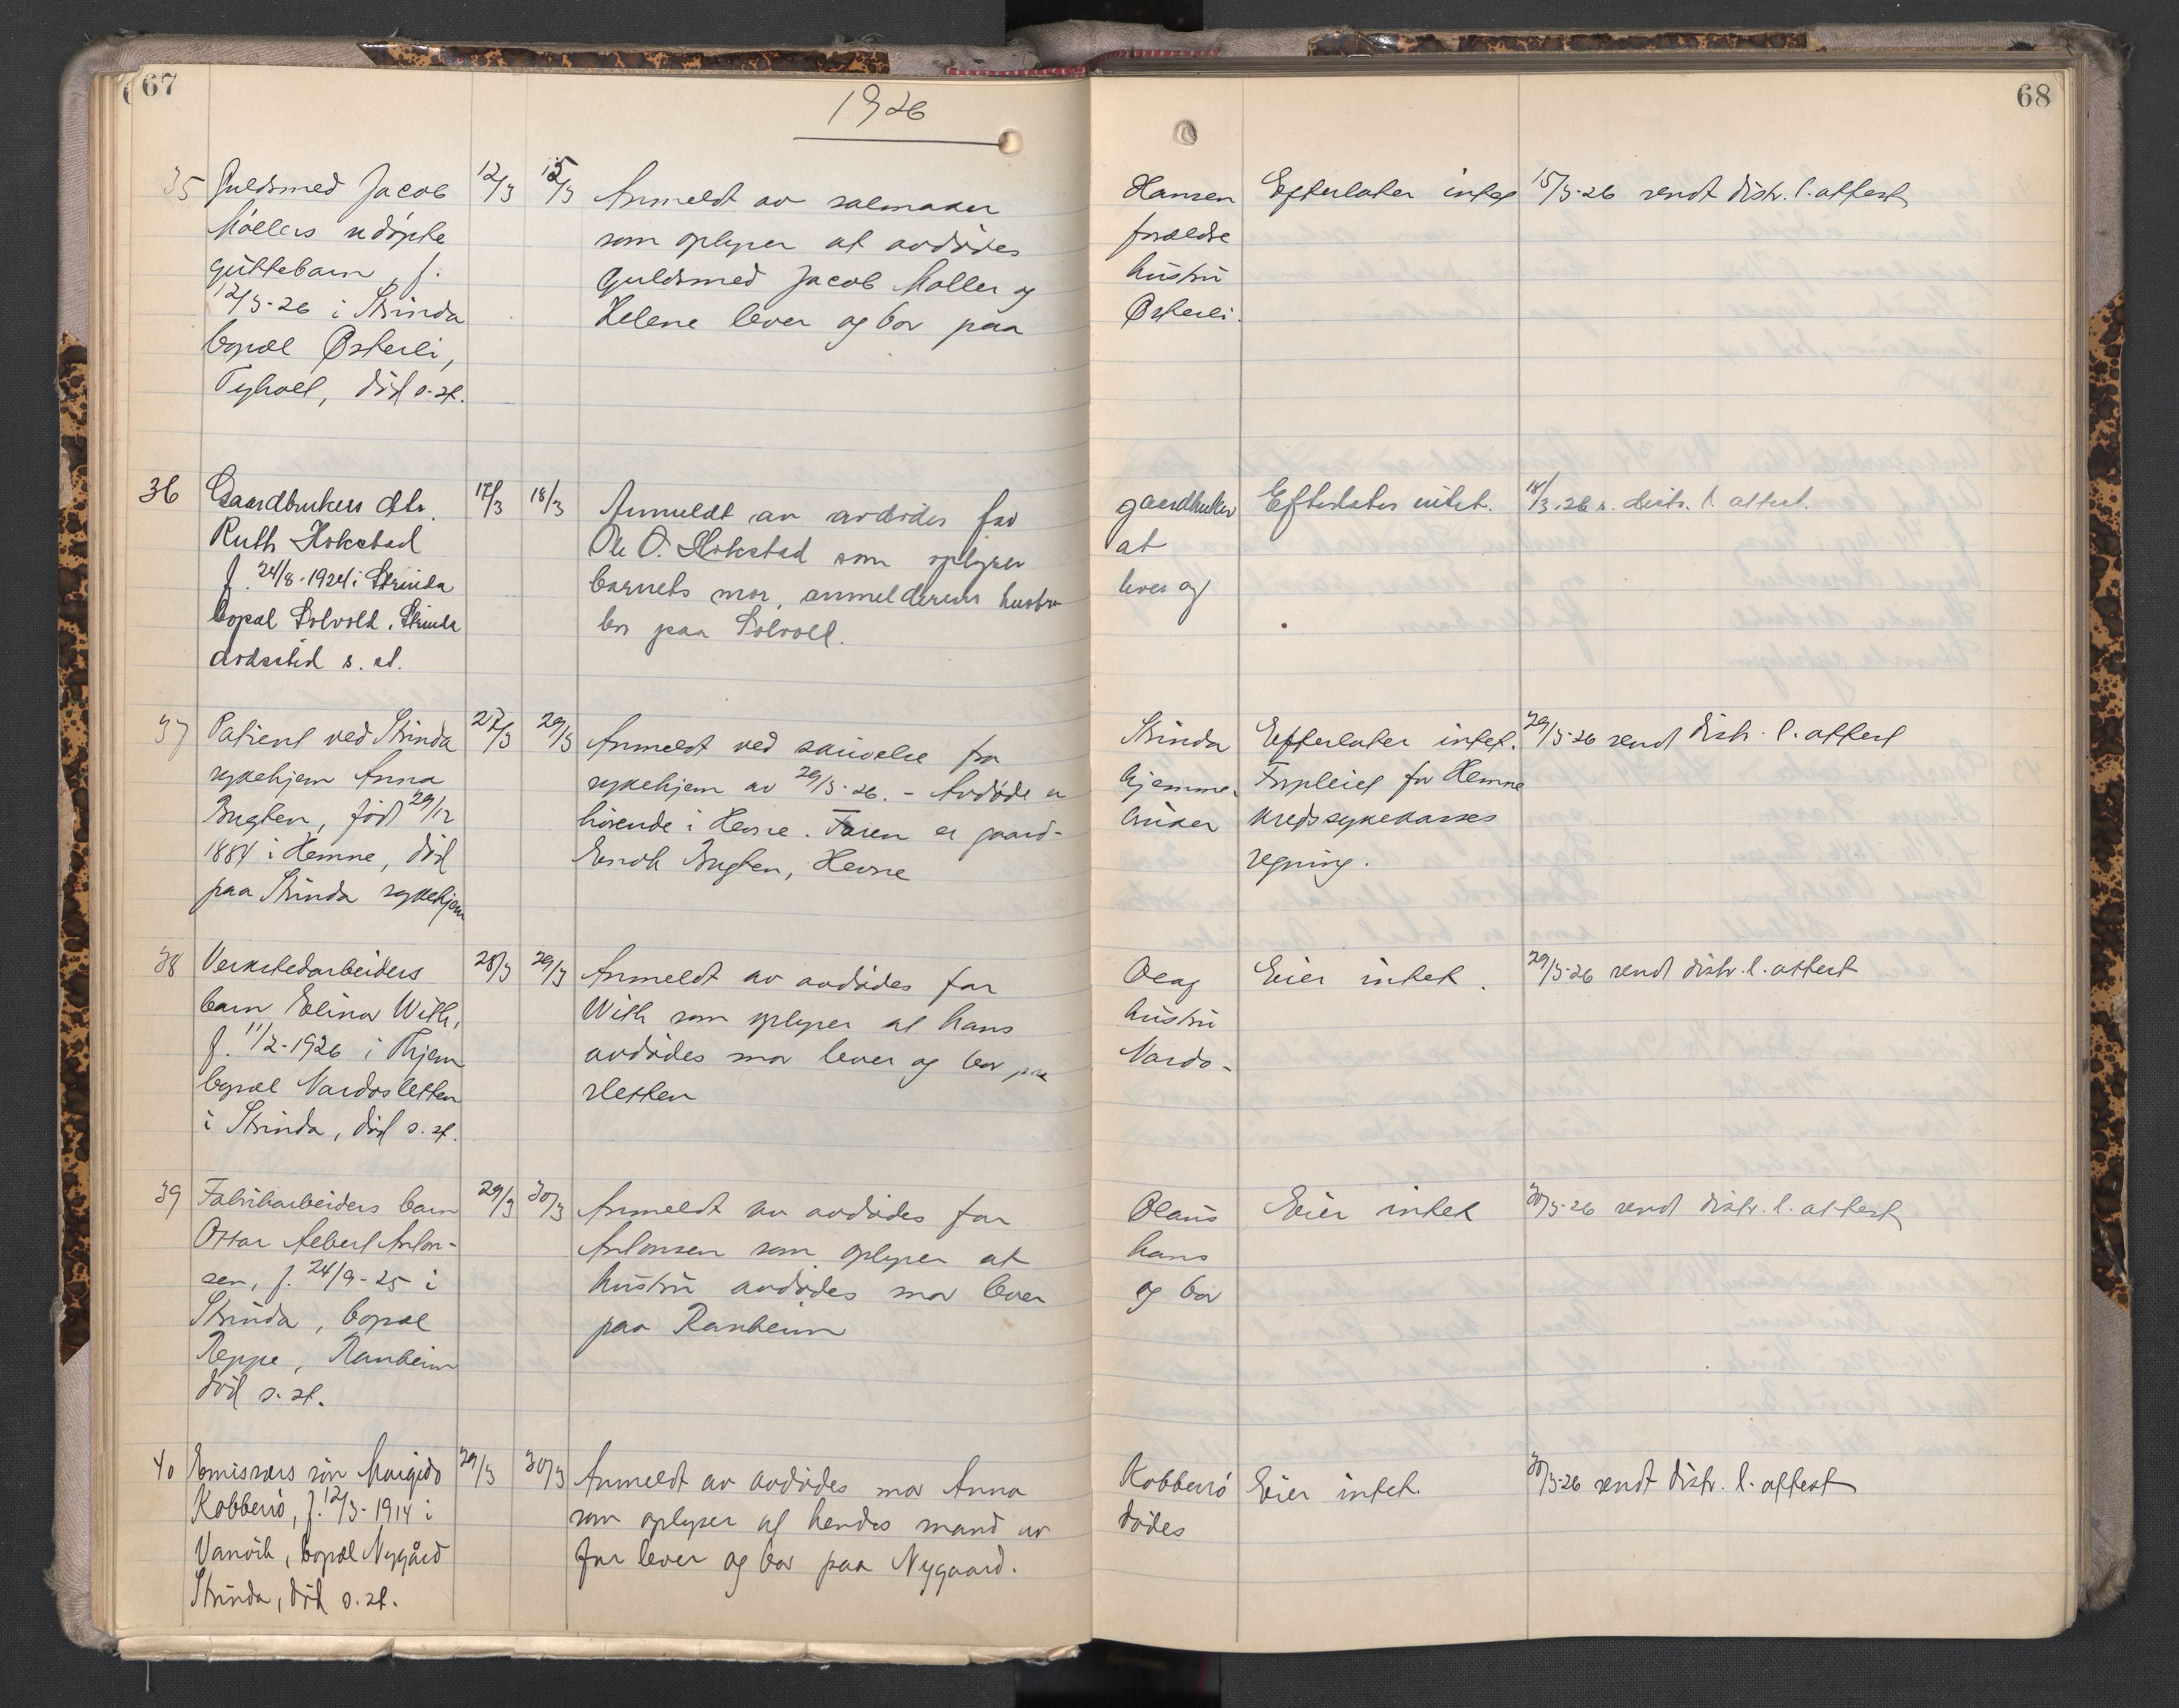 67
1926
68
35 Guldsmed Jacob 12/3 15/3 Anmeldt av salmaker Hansen Efterlater intet 15/3-26 sendt distr. l. attest
Møllers udøpte som oplyser at avdødes forældre
guttebarn, f. guldsmed Jacob Møller og hustru
12/3-26 i Strinda Helene lever og bor paa Østerli.
bopæl Østerli,
Tyholt, död s. st.
36 Gaardbrukers dtr. 17/3 18/3 Anmeldt av avdødes far gaardbruker Efterlater intet. 18/3-26 s. distr. l. attest.
Ruth Hokstad Ole O. Hokstad som oplyser at
f. 24/8-1924 i Strinda barnets mor, anmelderens hustru lever og
bopæl Solvold, Strinda bor paa Solvoll.
dødssted s. st.
37 Patient ved Strinda 27/3 29/3 Anmeldt ved skrivelse fra Strinda Efterlater intet. 29/3-26 sendt distr. l. attest
sykehjem Anna sykehjem av 29/3-26. - Avdøde er hjemme- Forpleiet for Hemne
Bugten, född 29/12 hörende i Hevne. Faren er gaard- bruker kredssykekasses
1884 i Hemne, död Endre Bugten, Hevne regning.
paa Strinda sykehjem
38 Verkstedarbeiders 28/3 29/3 Anmeldt av avdødes far Olaf Eier intet. 29/3-26 sendt distr. l. attest
barn Elina With, With som oplyser at hans hustru
f. 11/2-1926 i Thjem avdødes mor lever og bor paa Nardo-
bopæl Nardosletten sletten
i Strinda, död s. st.
39 Fabrikarbeiders barn 29/3 30/3 Anmeldt av avdødes far Olaus Eier intet 30/3-26 sendt distr. l. attest
Ottar Albert Anton- Antonsen som oplyser at hans
sen, f. 24/9-25 i hustru avdødes mor lever og bor
Strinda, bopæl paa Ranheim
Reppe, Ranheim
död s. st.
40 Emissærs søn Margido 29/3 30/3 Anmeldt av avdødes mor Anna Kobberrö Eier intet. 30/3-26 sendt distr. l. attest
Kobberrö, f. 12/3-1914 i som oplyser at hendes mand av dødes
Vanvik, bopæl Nygård far lever og bor paa Nygaard.
Strinda, död s. st.